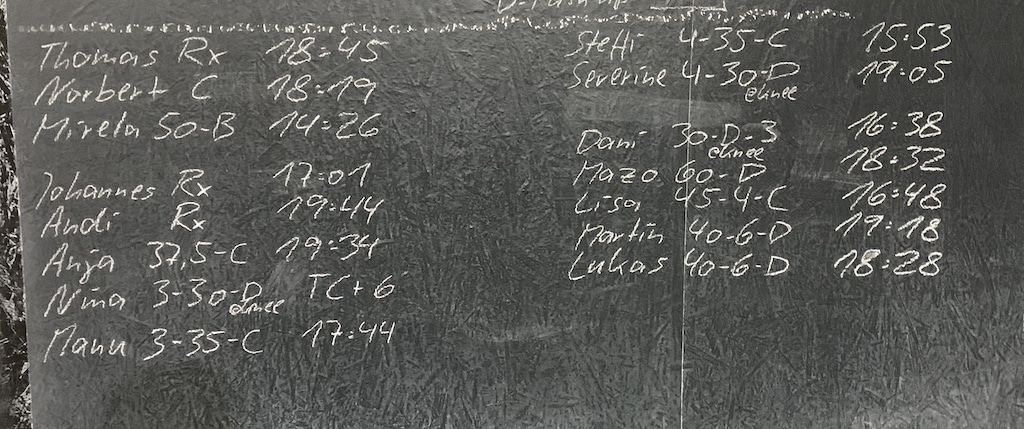 Thomas Rx 18:45
Norbert C 18:19
Mirela 50-B 14:26
Johannes Rx 17:01
Andi Rx 19:44
Anja 37,5-C 19:34
Nina 3-30-D TC+6
Manu 3-35-C 17:44
Steffi 4-35-C 15:53
Severine 4-30-D 19:05
Dani 30-D-3 16:38
Mazo 60-D 18:32
Lisa 45-4-C 16:48
Martin 40-6-D 19:18
Lukas 40-6-D 18:28